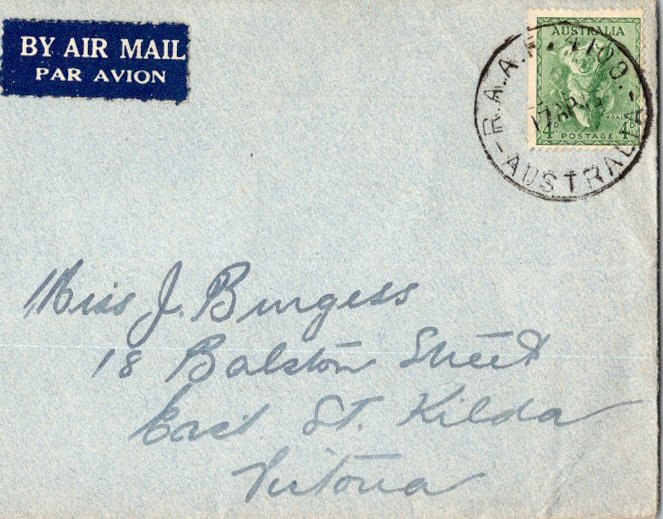 BY AIR MAIL
PAR AVION
AUSTRALIA
KOALA
4D 4D
POSTAGE
R.A.A.F.
AUSTRALIA
17 AP
Miss J. Burgess
18 Balston Street
East St. Kilda
Victoria